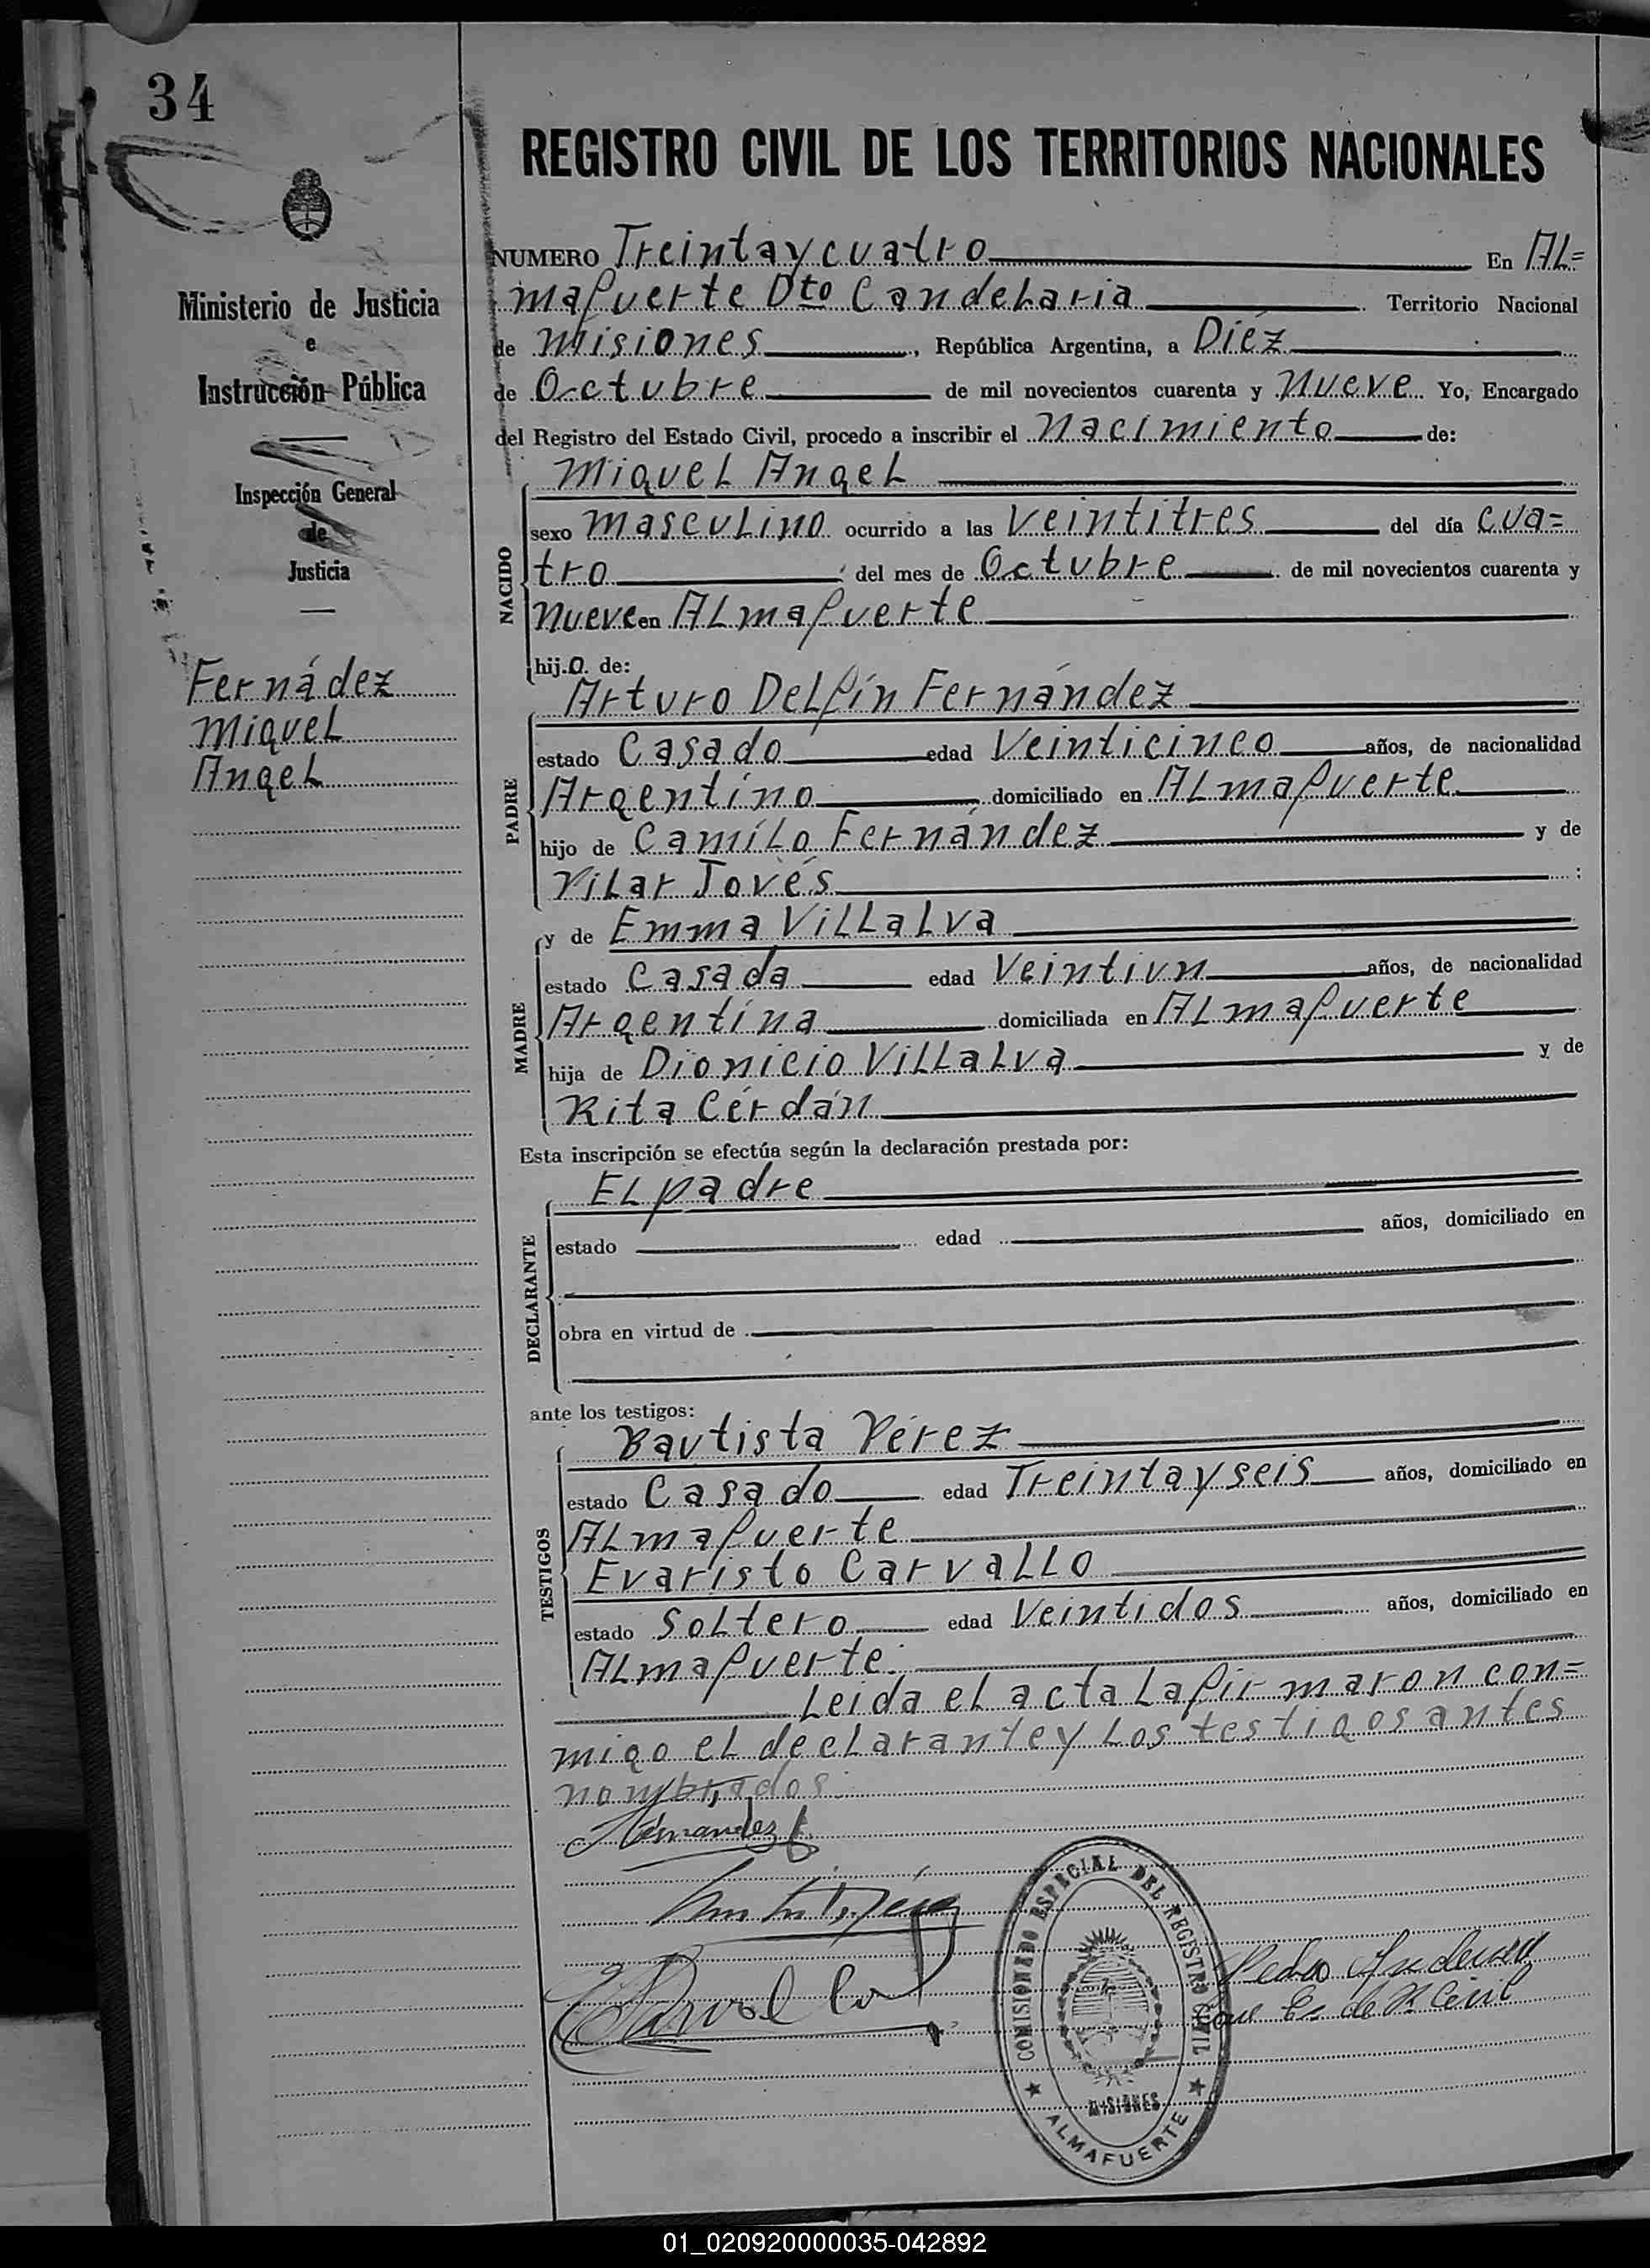 34
REGISTRO CIVIL DE LOS TERRITORIOS NACIONALES
Ministerio de Justicia
e
Instrucción Pública
Inspección General
de
Justicia
Fernádez
Miguel
Angel
NUMERO Treinta y cuatro En Al=
mafuerte Dto Candelaria Territorio Nacional
de Misiones, República Argentina, a Diéz
de Octubre de mil novecientos cuarenta y nueve Yo, Encargado
del Registro del Estado Civil, procedo a inscribir el nacimiento de:
NACIDO
Miguel Angel
sexo masculino ocurrido a las veintitres del día cua=
tro del mes de Octubre de mil novecientos cuarenta y
nueve en Almafuerte
hijo de:
PADRE
Arturo Delfín Fernández
estado Casado edad Veinticinco años, de nacionalidad
Argentino domiciliado en Almafuerte
hijo de Camílo Fernández y de
Pilar Jovés :
MADRE
y de Emma Villalva
estado Casada edad Veintiun años, de nacionalidad
Argentína domiciliada en Almafuerte
hija de Dionicio Villalva y de
Rita Cérdán
Esta inscripción se efectúa según la declaración prestada por:
DECLARANTE
El padre
estado edad años, domiciliado en
obra en virtud de
ante los testigos:
TESTIGOS
Bautista Pérez
estado Casado edad Treinta y seis años, domiciliado en
Almafuerte
Evaristo Carvallo
estado Soltero edad Veintidos años, domiciliado en
Almafuerte.
Leida el acta la firmaron con=
migo el declarante y los testigos antes
nombrados.
Fernandez
E Carvallo
Pedro
de R Civil
COMISIONADO ESPECIAL DEL REGISTRO CIVIL
MISIONES
★ ALMAFUERTE ★
01_020920000035-042892